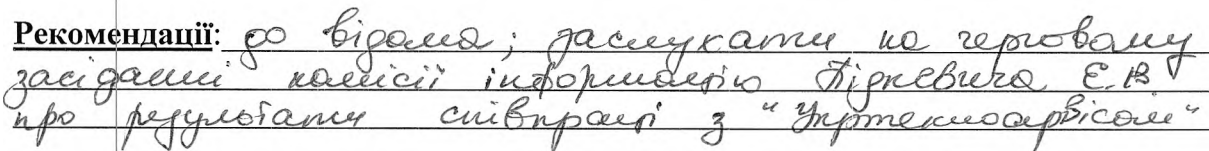 Рекомендації: до відома; заслухати на черговому
засіданні комісії інформацію Підкевича Є.В
про результати співпраці з "Укртехносервісом"